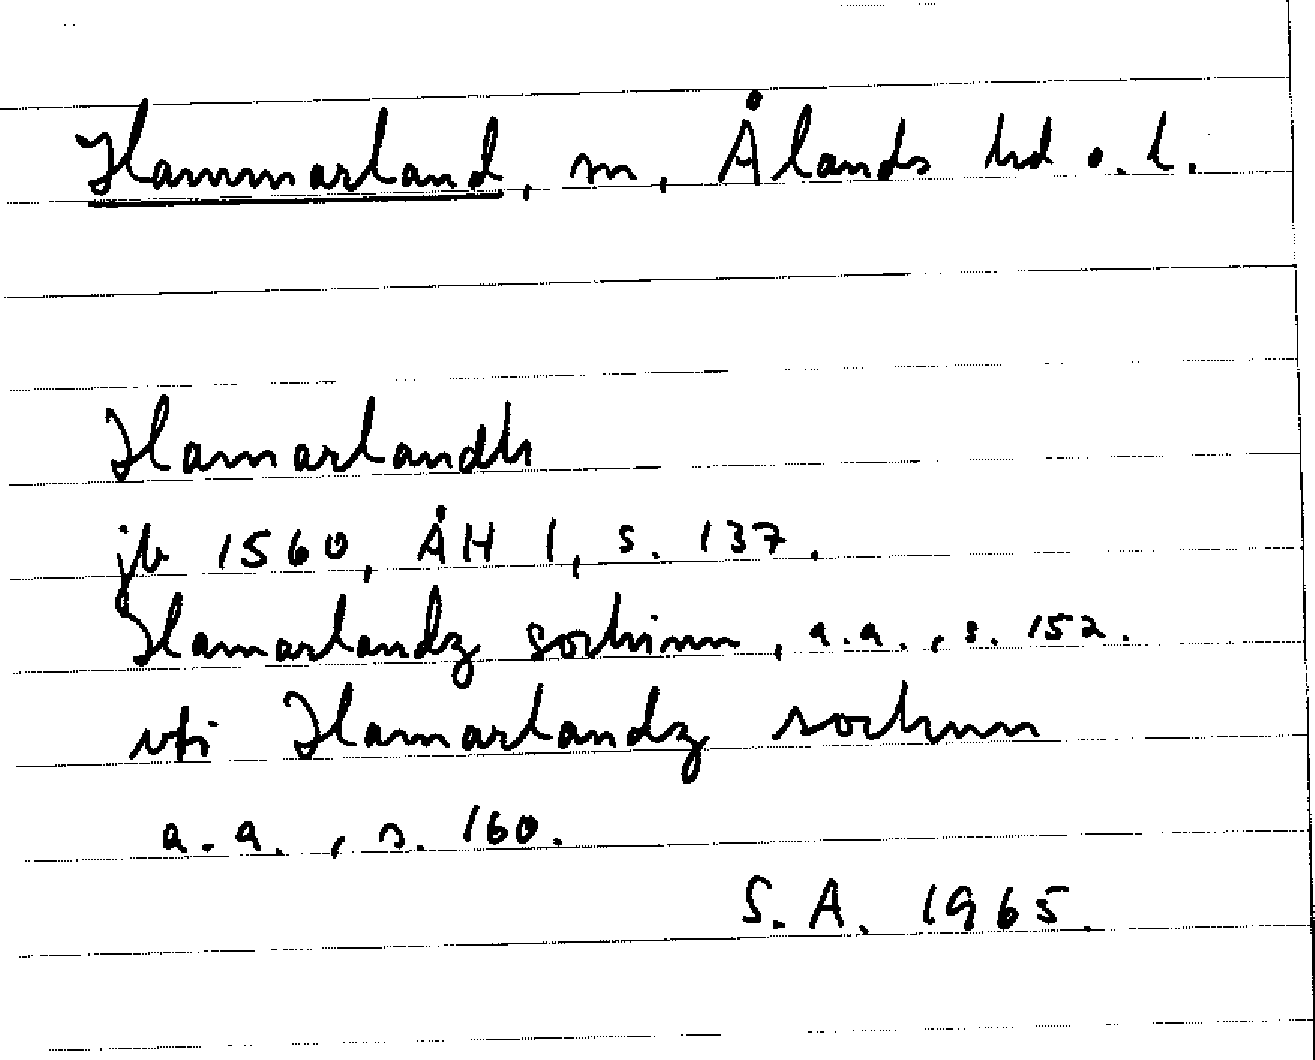 Hammarland, sn, Ålands hd o. l.
Hamarlandh
jb 1560, ÅH 1, s. 137.
Hamarlandz sochinn, a.a., s. 152.
vti Hamarlandz sochnn
a.a., s. 160.
S.A. 1965.